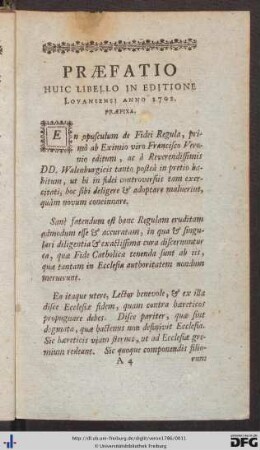 PRÆFATIO
HUIC LIBELLO IN EDITIONE
LOVANIENSI ANNO 1702.
PRÆFIXA.
En opusculum de Fidei Regula, pri-
mò ab Eximio viro Francisco Vero-
nio editum, ac à Reverendissimis
DD. Walenburgicis tanto posteà in pretio ha-
bitum, ut hi in fidei controversiis tam exer-
citati, hoc sibi deligere & adoptare maluerint,
quàm novum concinnare.
Sanè fatendum est hanc Regulam eruditam
admodum esse & accuratam, in qua & singu-
lari diligentiâ & exactissimâ curâ discernuntur
ea, quæ Fide Catholica tenenda sunt ab iis,
quæ tantam in Ecclesia authoritatem nondum
meruerunt.
Ea itaque utere, Lector benevole, & ex illa
disce Ecclesiæ fidem, quam contra hæreticos
propugnare debes. Disce pariter, quæ sint
dogmata, quæ hactenus non definivit Ecclesia.
Sic hæreticis viam sternes, ut ad Ecclesiæ gre-
mium redeant. Sic quoque componendis filio-
A 4 rum
http://dl.ub.uni-freiburg.de/diglit/
© Universitätsbibliothek Freiburg
DFG